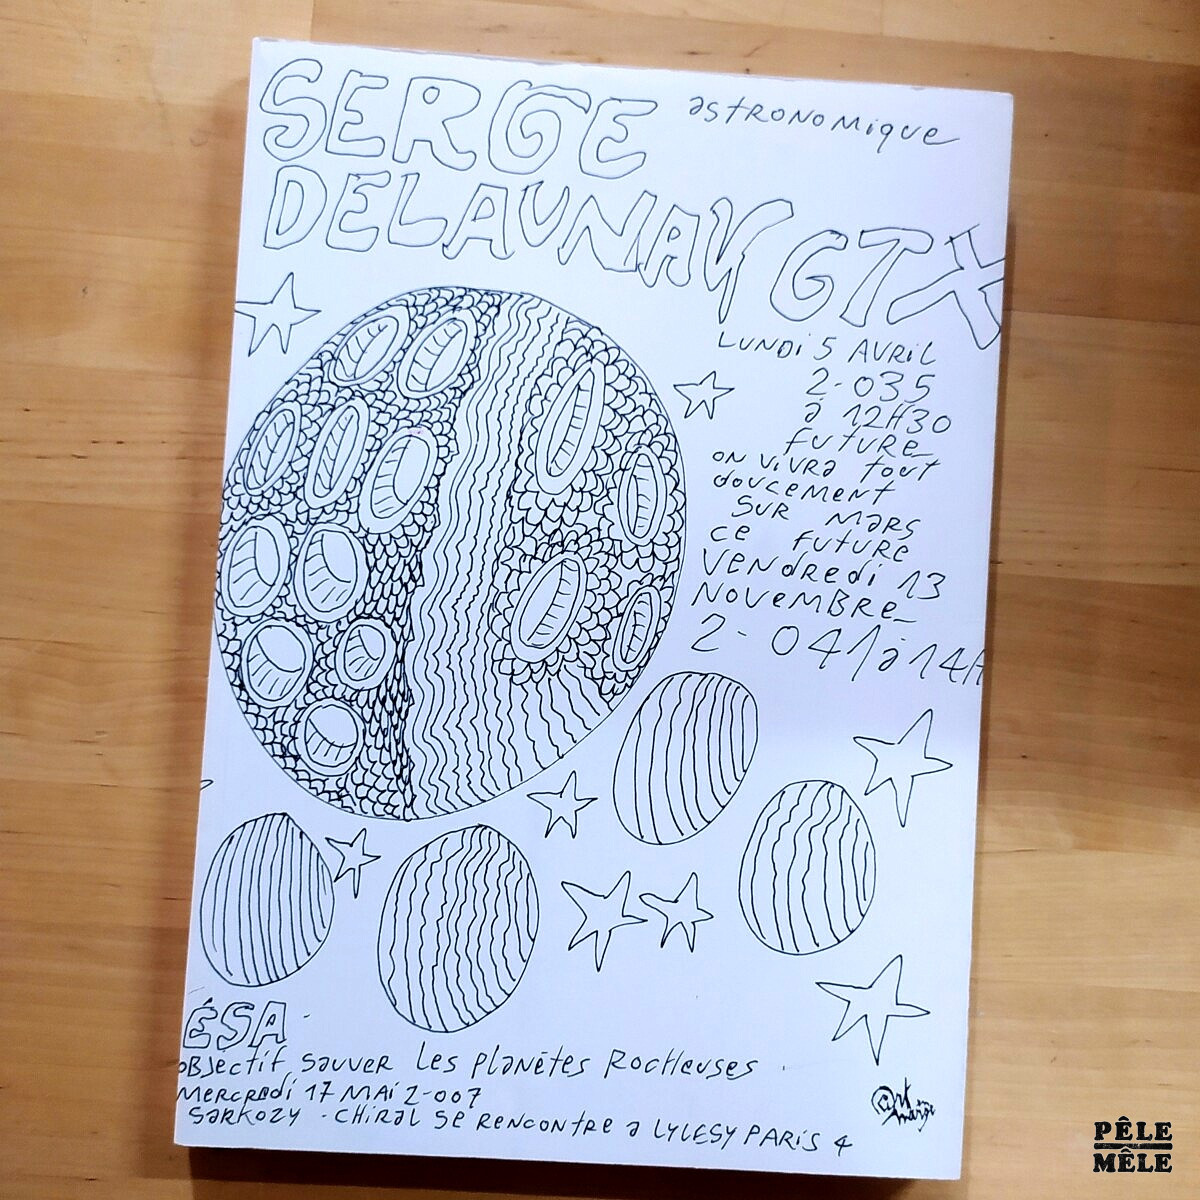 SERGE
astronomique
DELAUNAY GTX
LUNDi 5 AVRiL
2-035
à 12H30
future
on vivra tout
doucement
sur mars
ce future
vendredi 13
Novembre
2-041 à 14H
ÉSA
objectif sauver les planètes Rocheuses
Mercredi 17 Mai 2-007
Sarkozy - Chiral se rencontre a Lylesy Paris 4
art en
marge
PÊLE
MÊLE